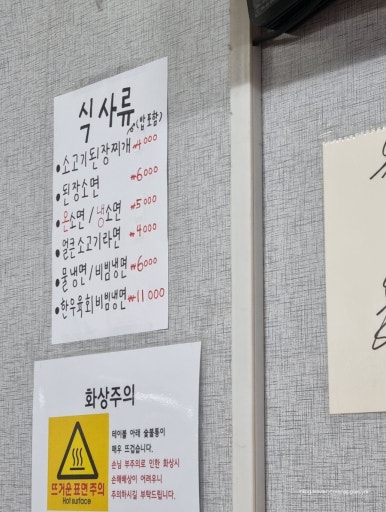 식사류
(밥포함)
•소고기된장찌개 ₩4000
•된장소면 ₩6000
•온소면/냉소면 ₩5000
•얼큰소고기라면 ₩4000
•물냉면/비빔냉면 ₩6000
•한우육회비빔냉면 ₩11000
화상주의
테이블 아래 숯불통이
매우 뜨겁습니다.
손님 부주의로 인한 화상시
손해배상이 어려우니
주의하시길 부탁드립니다.
뜨거운 표면 주의
Hot surface